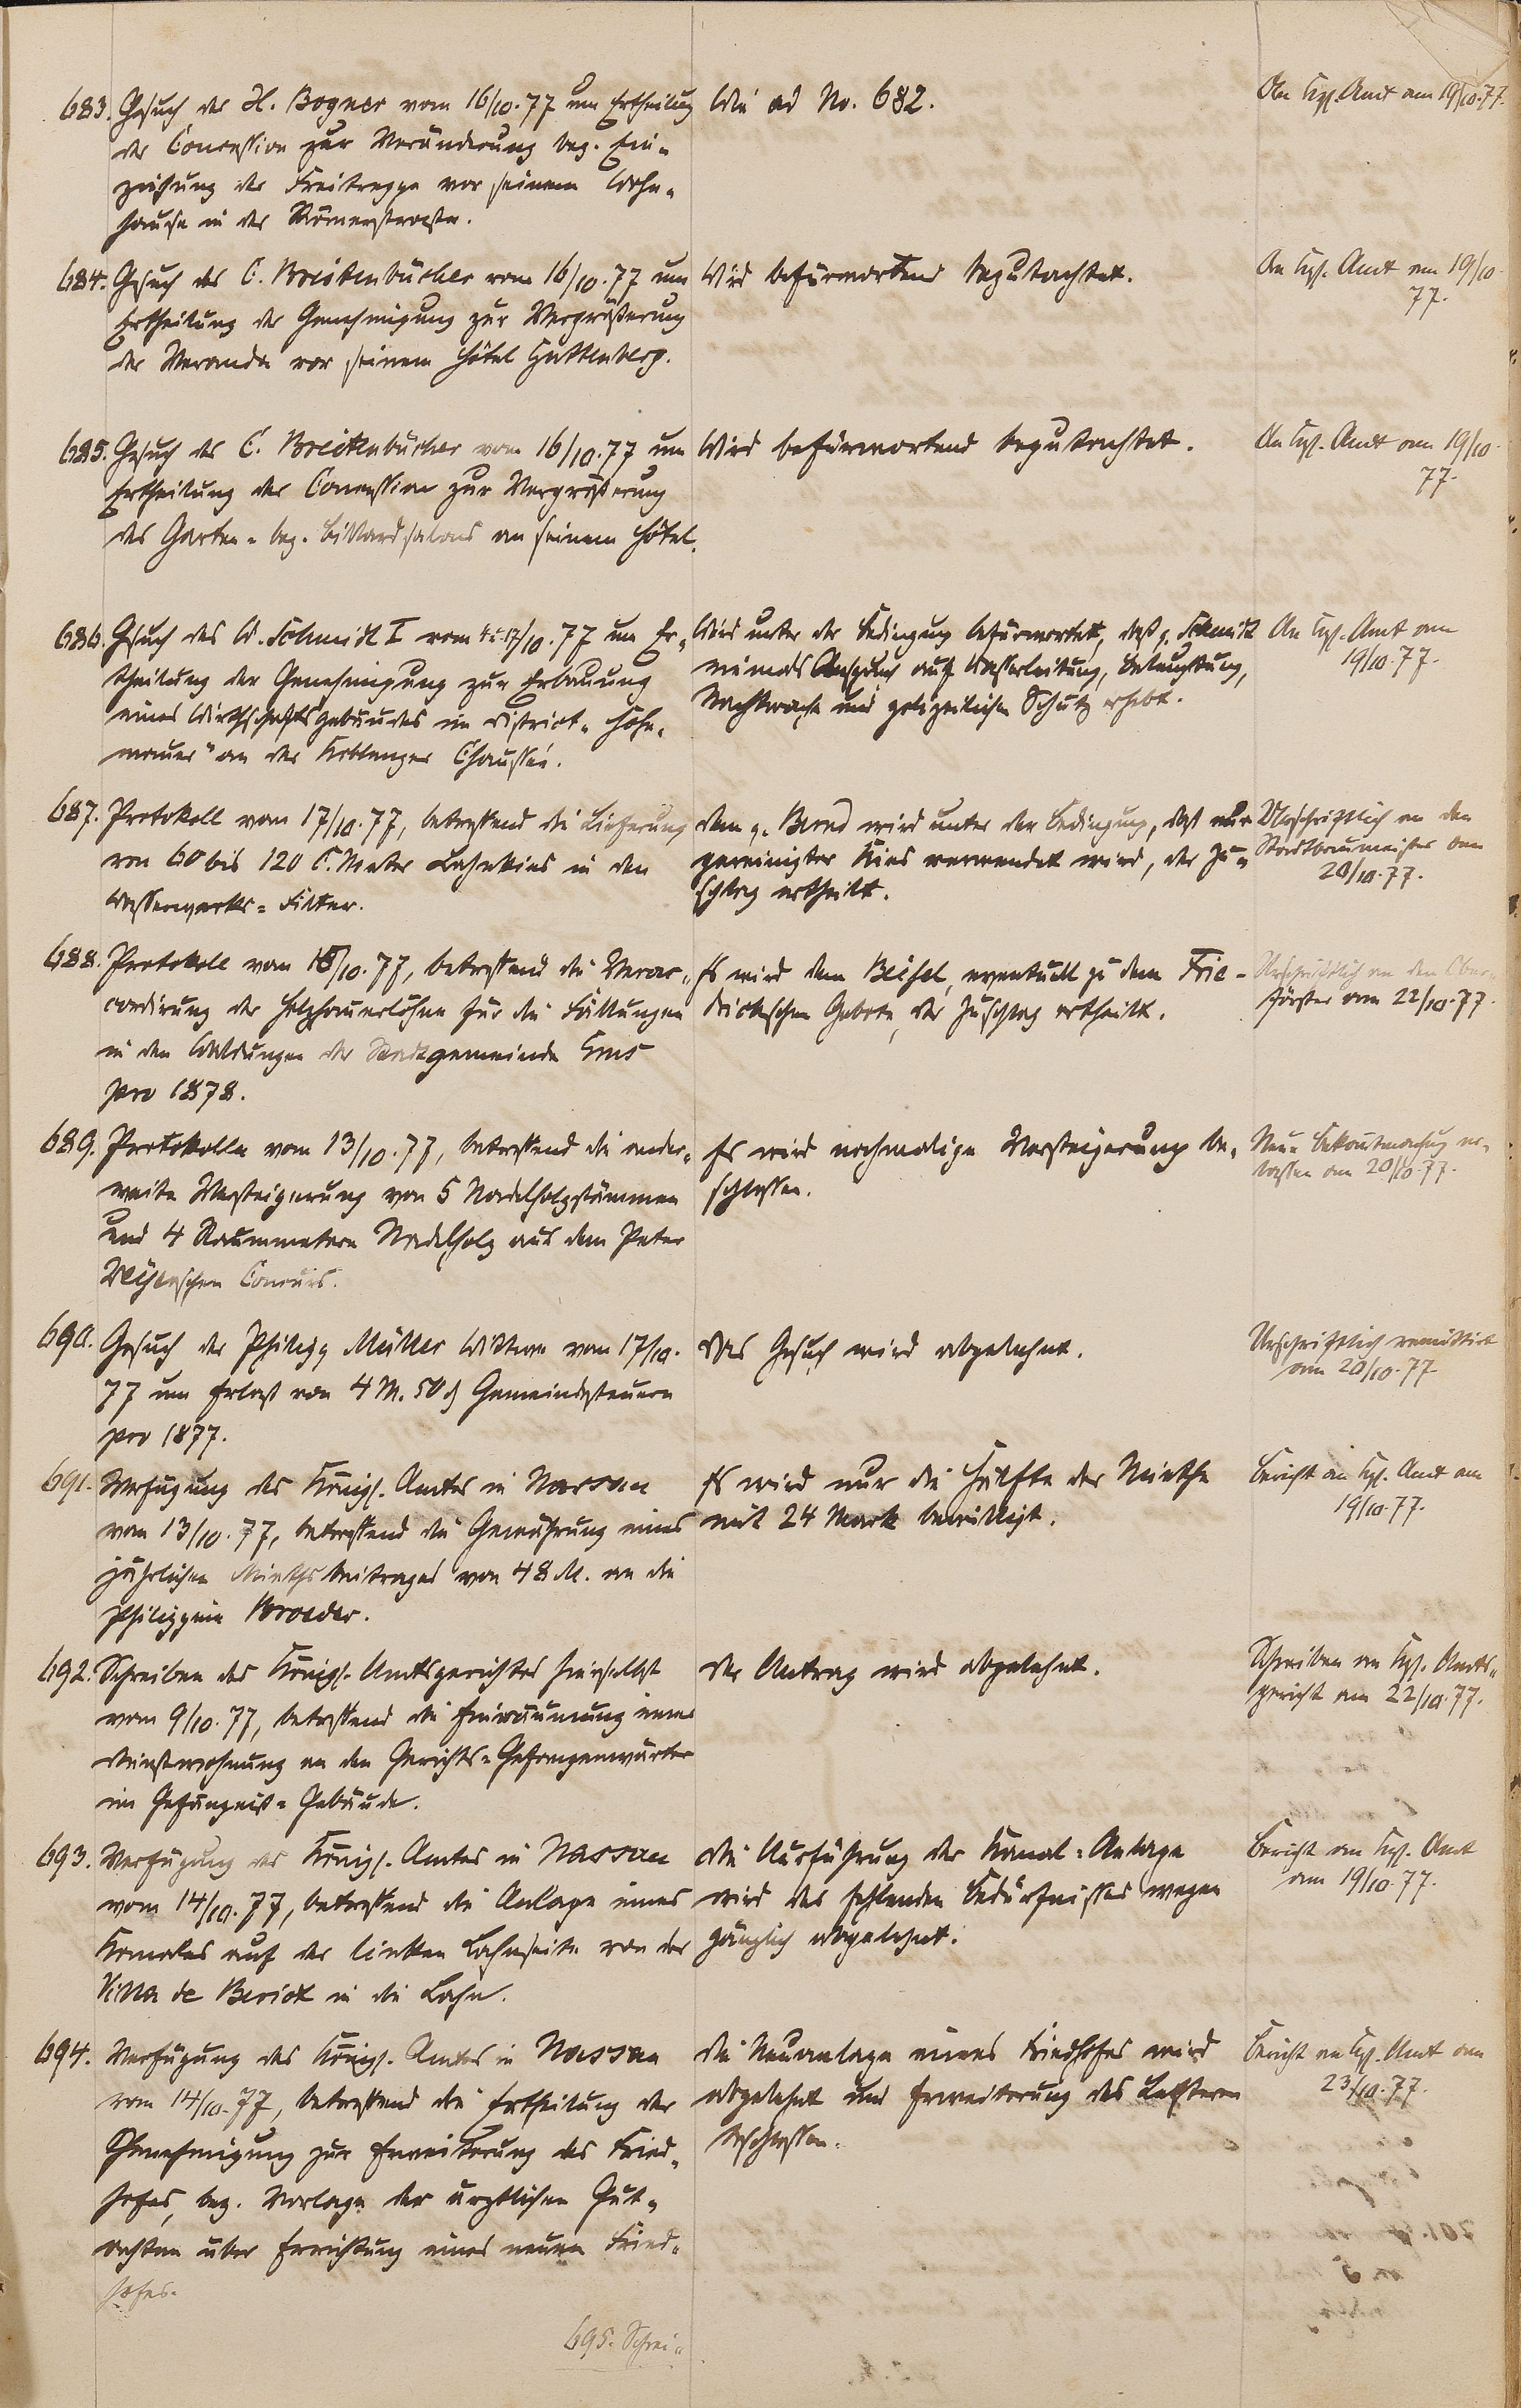 683. Gesuch des H. Bogner vom 16/10.77 um Ertheilung
der Concession zur Veränderung bez. Ein-
ziehung der Freitreppe vor seinem Wohn-
hause in der Römerstraße.
Wie ad No. 682.
An Kgl. Amt am 19/10.77.
684. Gesuch des C. Breitenbücher vom 16/10.77 um
Ertheilung der Genehmigung zur Vergrößerung
der Veranda vor seinem Hôtel Guttenberg.
Wird befürwortend begutachtet.
An Kgl. Amt am 19/10.
77.
685. Gesuch des C. Breitenbücher vom 16/10.77 um
Ertheilung der Concession zur Vergrößerung
des Garten- bez. Billardsalons an seinem Hôtel.
Wird befürwortend begutachtet.
An Kgl. Amt am 19/10.
77.
686. Gesuch des W. Schmidt I vom 17/10.77 um Er-
theilung der Genehmigung zur Erbauung
eines Wirthschaftsgebäudes im District "Hohe-
mauer" an der Koblenzer Chaussée.
Wird unter der Bedingung befürwortet, daß p. Schmidt
niemals Anspruch auf Wasserleitung, Beleuchtung,
Nachtwache und polizeilichen Schutz erhebt.
An Kgl. Amt am
19/10.77.
687. Protokoll vom 17/10.77, betreffend die Lieferung
von 60 bis 120 C. Meter Lahnkies in den
Wasserwerks-Filter.
Dem p. Bernd wird unter der Bedingung, daß nur
gereinigter Kies verwendet wird, der Zu-
schlag ertheilt.
Urschriftlich an den
Stadtbaumeister am
20/10.77.
688. Protokoll vom 18/10.77, betreffend die Verac-
cordirung der Holzhauerlöhne für die Fällungen
in den Waldungen der Stadtgemeinde Ems
pro 1878.
Es wird dem Beisel, eventuell zu dem Frie-
drichschen Gebote, der Zuschlag ertheilt.
Urschriftlich an den Ober-
förster am 22/10.77.
689. Protokolle vom 13/10.77, betreffend die ander-
weite Versteigerung von 5 Nadelholzstämmen
und 4 Raummetern Nadelholz aus dem Peter
Concurs.
Es wird nochmalige Versteigerung be-
schlossen.
Neue Bekanntmachung er-
lassen am 20/10.77.
690. Gesuch der Philipp Müller Wittwe vom 17/10.
77 um Erlaß von 4 M. 50 ₰ Gemeindesteuern
pro 1877.
Das Gesuch wird abgelehnt.
Urschriftlich remittirt
am 20/10.77
691. Verfügung des Königl. Amtes in Nassau
vom 13/10.77, betreffend die Gewährung eines
jährlichen Miethsbeitrages von 48 M. an die
Philippine Broeder.
Es wird nur die Hälfte der Miethe
mit 24 Mark bewilligt.
Bericht an Kgl. Amt am
19/10.77.
692. Schreiben des Königl. Amtsgerichtes hierselbst
vom 9/10.77, betreffend die Einräumung einer
Dienstwohnung an den Gerichts-Gefangenwärter
im Gefängniß-Gebäude.
Der Antrag wird abgelehnt.
Schreiben an Kgl. Amts-
gericht am 22/10.77.
693. Verfügung des Königl. Amtes in Nassau
vom 14/10.77, betreffend die Anlage eines
Kanales auf der linken Lahnseite von der
Villa de Beriot in die Lahn.
Die Ausführung der Kanal-Anlage
wird des fehlenden Bedürfnisses wegen
gänzlich abgelehnt.
Bericht an Kgl. Amt
am 19/10.77.
694. Verfügung des Königl. Amtes in Nassau
vom 14/10.77, betreffend die Ertheilung der
Genehmigung zur Erweiterung des Fried-
hofes, bez. Vorlage der ärztlichen Gut-
achten über Errichtung eines neuen Fried-
hofes.
Die Neuanlage eines Friedhofes wird
abgelehnt und Erweiterung des Letzteren
beschlossen.
Bericht an Kgl. Amt am
23/10.77.
695. Schrei-